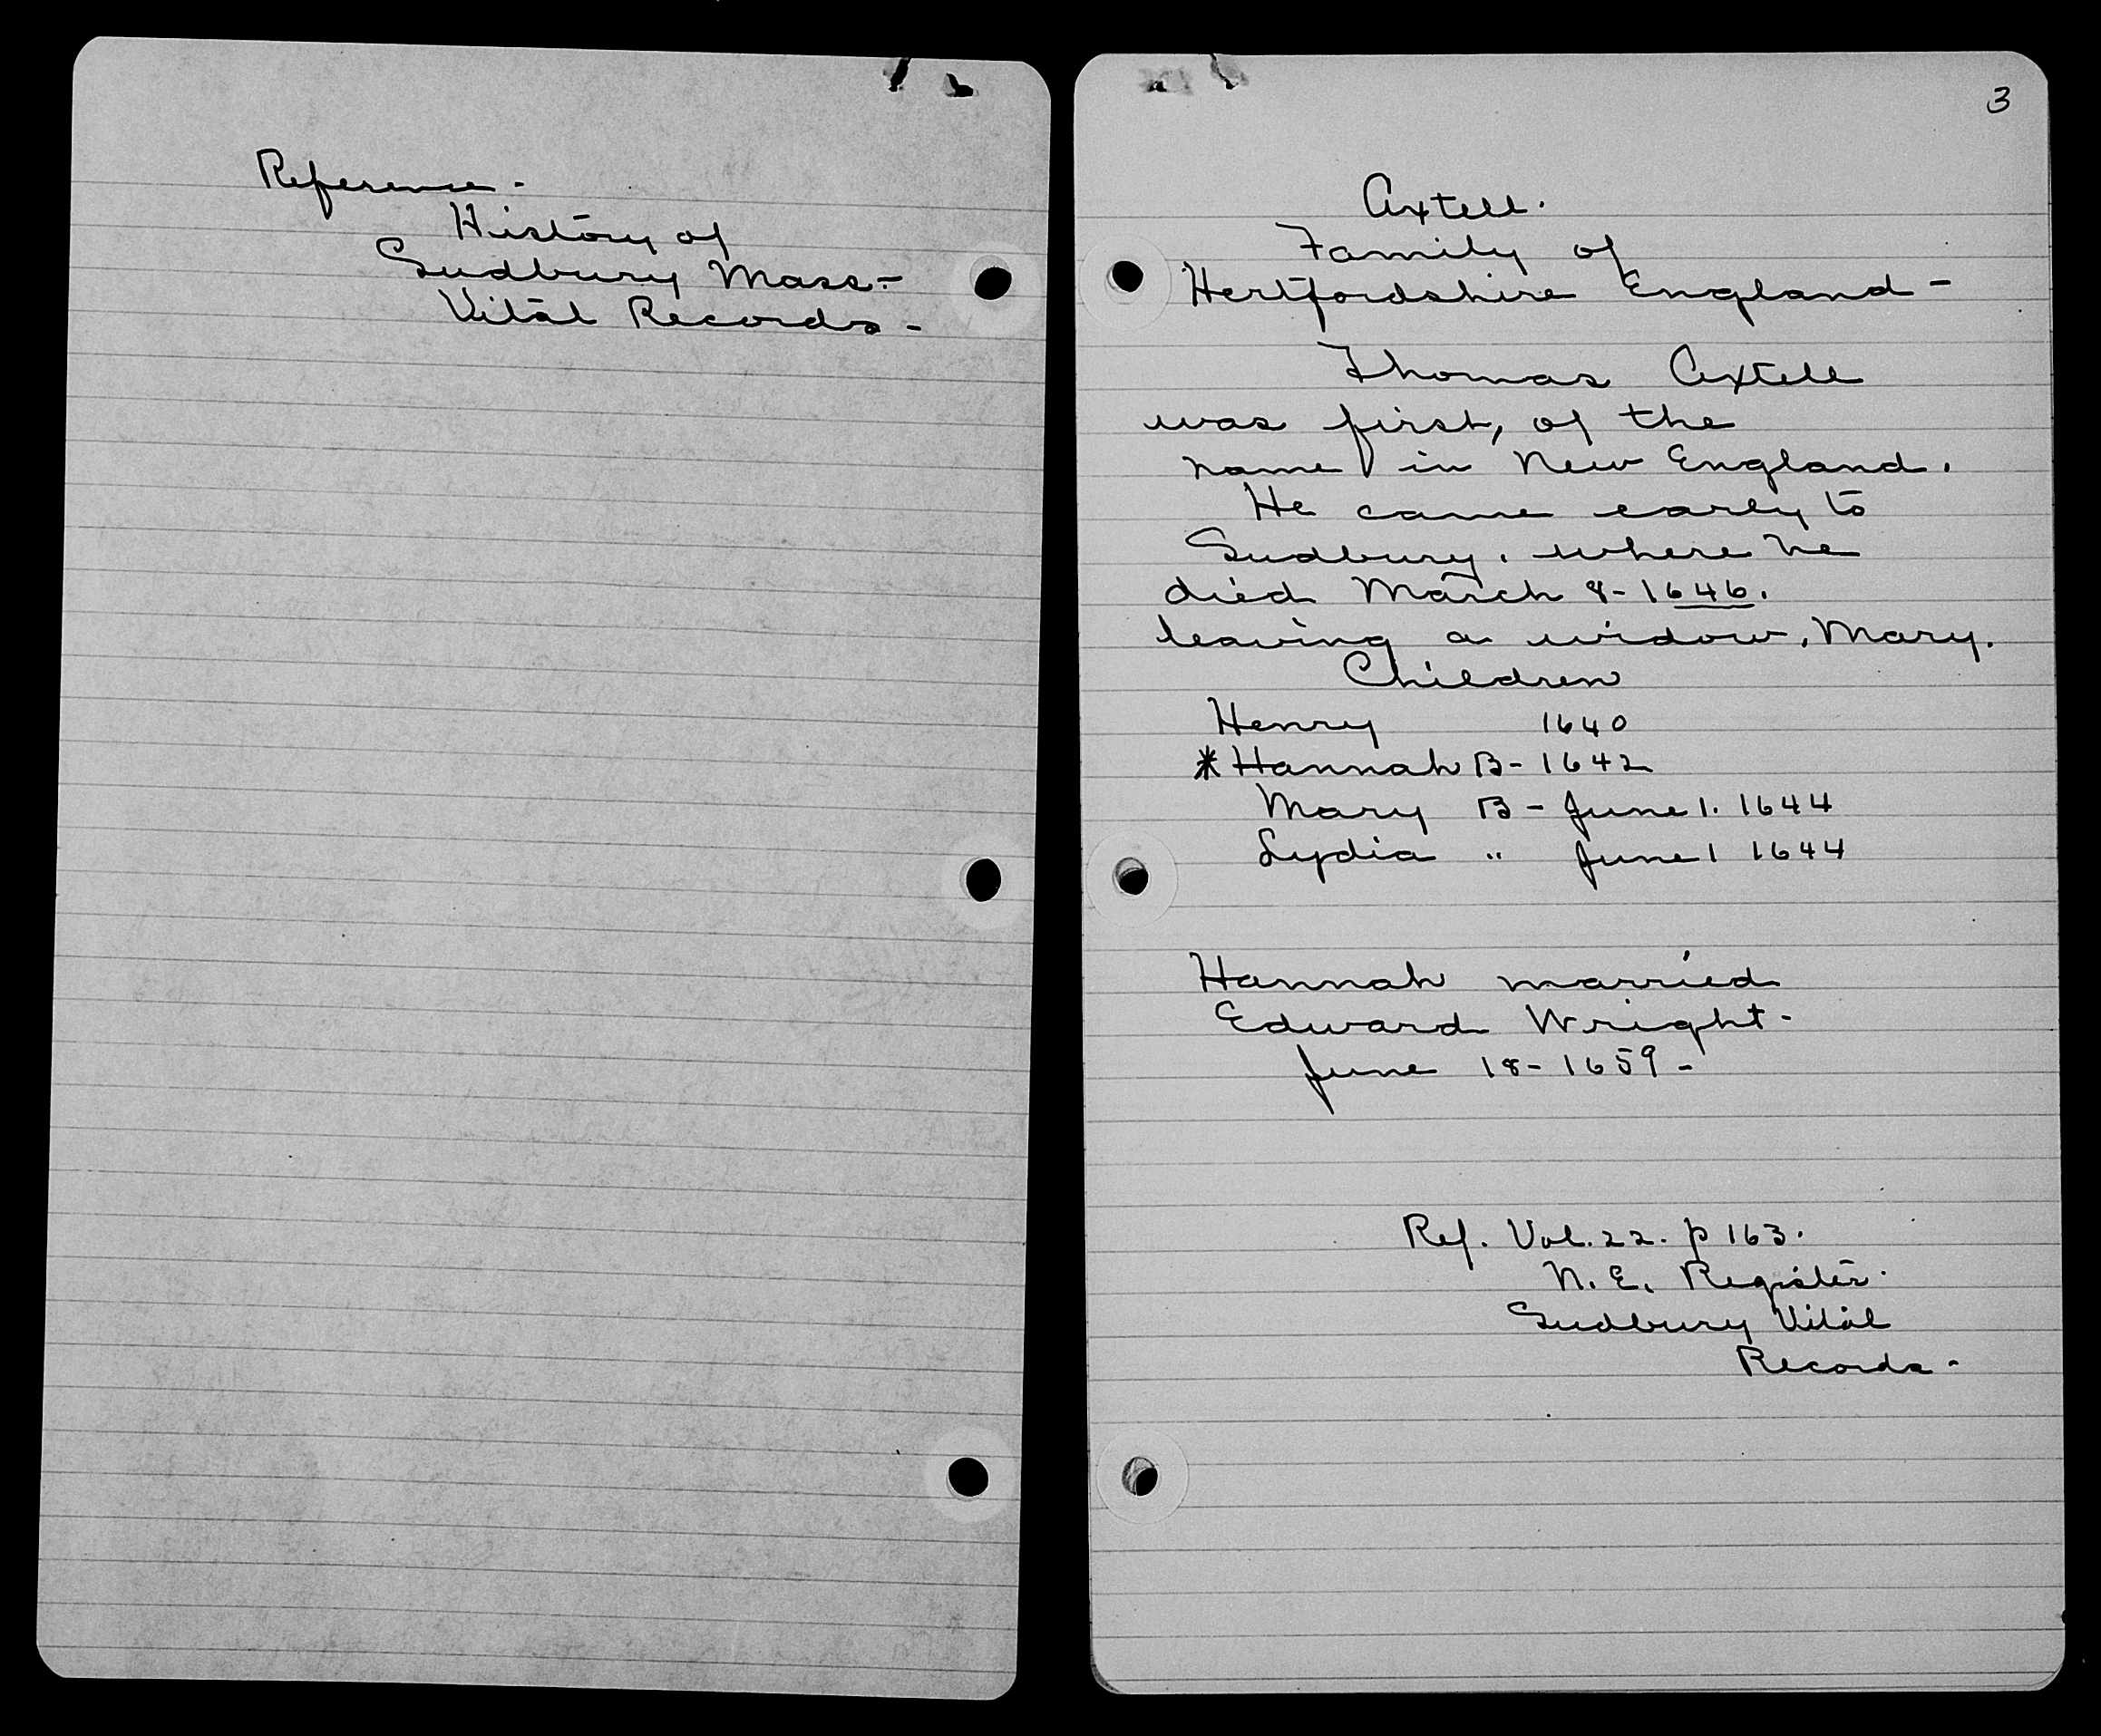 Reference -
History of
Sudbury Mass. -
Vital Records -
3
Axtell.
Family of
Hertfordshire England -
Thomas Axtell
was first, of the
name in New England.
He came early to
Sudbury. where he
died March 8 - 1646.
leaving a widow, Mary.
Children
Henry 1640
* Hannah B - 1642
Mary B - June 1. 1644
Lydia " June 1 1644
Hannah married
Edward Wright -
June 18 - 1659 -
Ref. Vol. 22. p 163.
N. E. Register.
Sudbury Vital
Records -